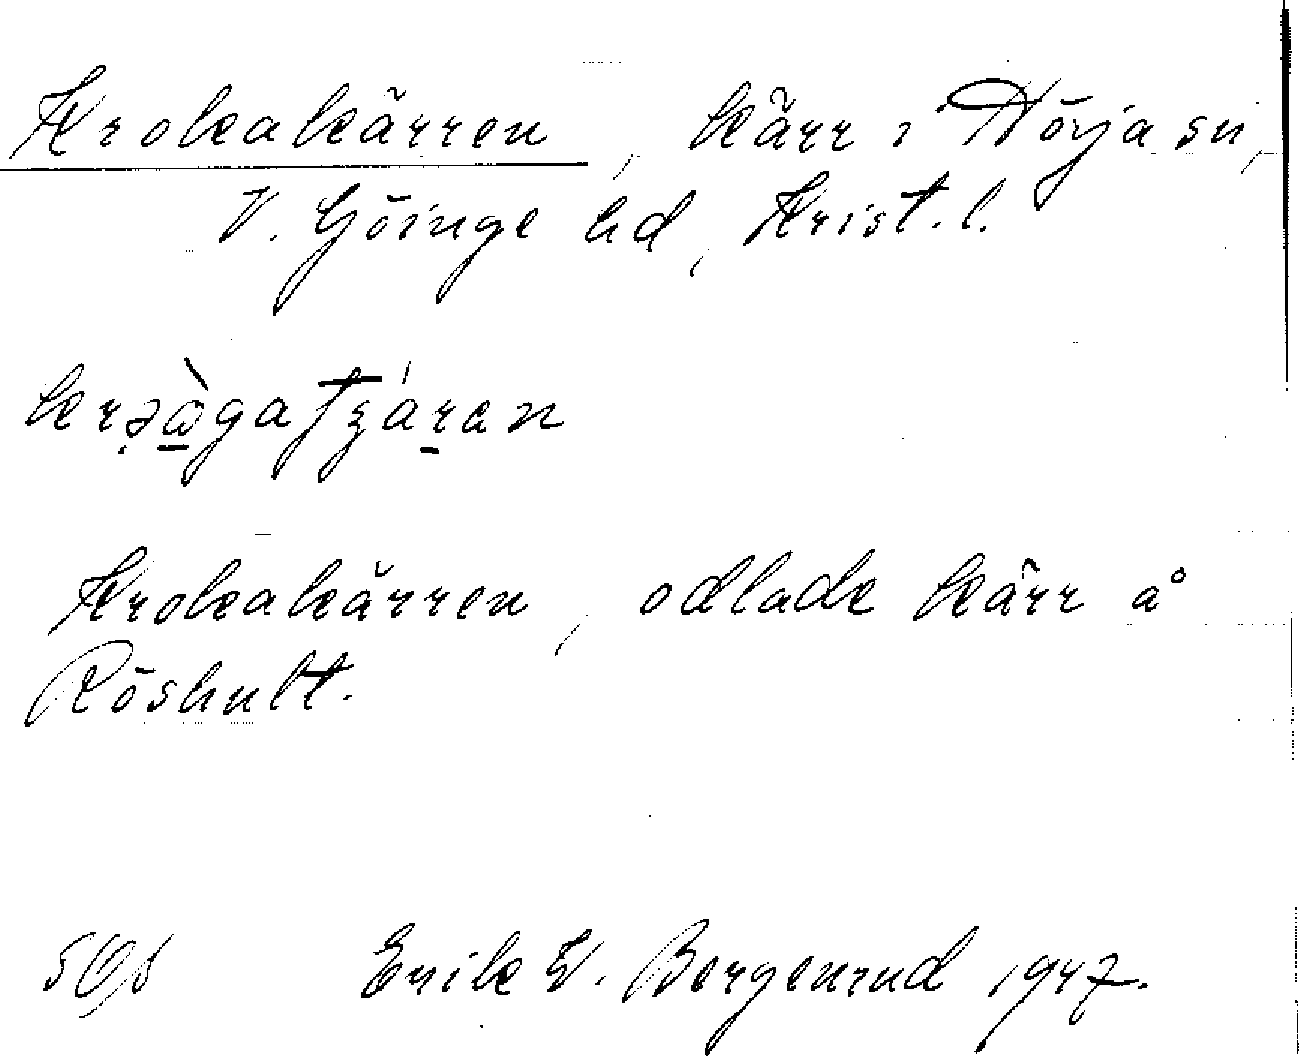 Krokakärren, kärr i Nörja sn,
V. Göinge hd, Krist. l.
Krokakärren, odlade kärr å
Röshult.
Erik W. Bergenrud 1947.